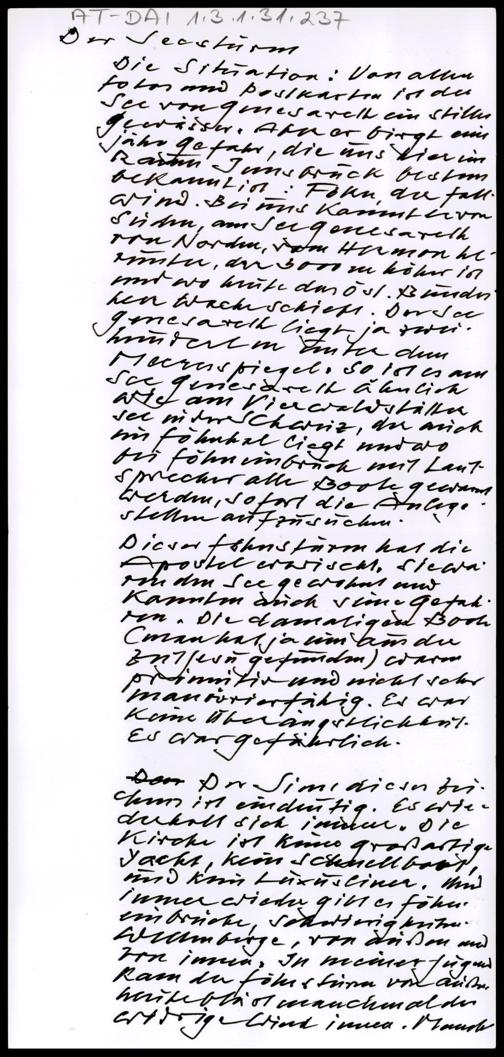 AT-DAI 1.3.1.31.237
Der Seesturm
Die Situation: Von allen
Fotos und Postkarten ist der
See von Genesareth ein stilles
Gewässer. Aber er birgt eine
jähe Gefahr, die uns hier im
Raum Innsbruck bestens
bekannt ist: Föhn, der Fall-
wind. Bei uns kommt er von
Süden, am See Genesareth
von Norden, vom Hermon he-
runter, der 3000 m höher ist
und wo heute das Öst. Bundes-
heer Wache schiebt. Der See
Genesareth liegt ja zwei-
hundert m unter dem
Meeresspiegel. So ist es am
See Genesareth ähnlich
wie am Vierwaldstätter
see in der Schweiz, der auch
im Föhntal liegt und wo
bei Föhneinbruch mit Laut-
sprecher alle Boote gewarnt
werden, sofort die Anlege-
stellen aufzusuchen.
Dieser Föhnsturm hat die
Apostel erwischt, sie wa-
ren den See gewohnt und
kannten auch seine Gefah-
ren. Die damaligen Boote
(man hat ja um aus der
Zeit Jesu gefunden) waren
primitiv und nicht sehr
manövrierfähig. Es war
keine Überängstlichkeit.
Es war gefährlich.
Der Sinn dieser Zei-
chens ist eindeutig. Es wie-
derholt sich immer. Die
Kirche ist keine großartige
Yacht, kein Schnellboot,
und kein Luxusliner. Und
immer wieder gibt es Föhn-
einbrüche, Schwierigkeiten,
Wellenberge, von außen und
von innen. In meiner Jugend
kam der Föhnsturm von außen
heute bläst manchmal der
widrige Wind innen. Manche